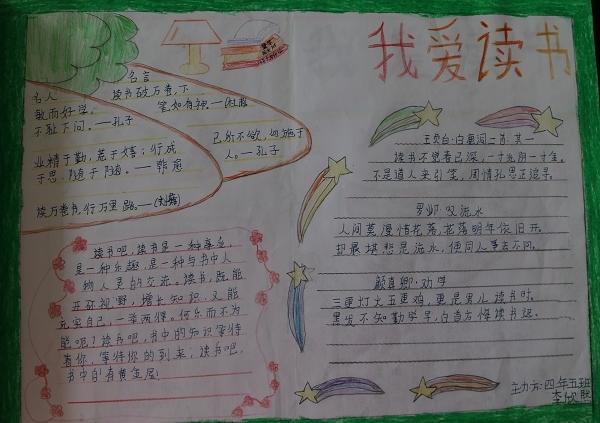 我爱读书
名人
名言
读书破万卷,下
笔如有神。——杜甫
敏而好学,
不耻下问。——孔子
己所不欲,勿施于
人。——孔子
业精于勤,荒于嬉;行成
于思,随于随。——韩愈
读万卷书,行万里路。——
读书吧,读书是一种享受,
是一种乐趣,是一种与书中人
物人灵的交流。读书,既能
开环视野,增长知识,又能
充实自己,一举两得,何乐而不为
能呢?读书吧,书中的知识等待
着你,等待你的到来;读书吧,
书中自有黄金屋!
王贞白·白鹿洞二首·其一
读书不觉春已深,一寸光阴一寸金。
不是道人来引笑,周情孔思正追寻。
罗邺·叹流水
人间莫漫惜花落,花落明年依旧开。
却最堪悲是流水,便同人事去不回。
颜真卿·劝学
三更灯火五更鸡,更是男儿读书时。
黑发不知勤学早,白首方悔读书迟。
主力方:四年五班
李欣